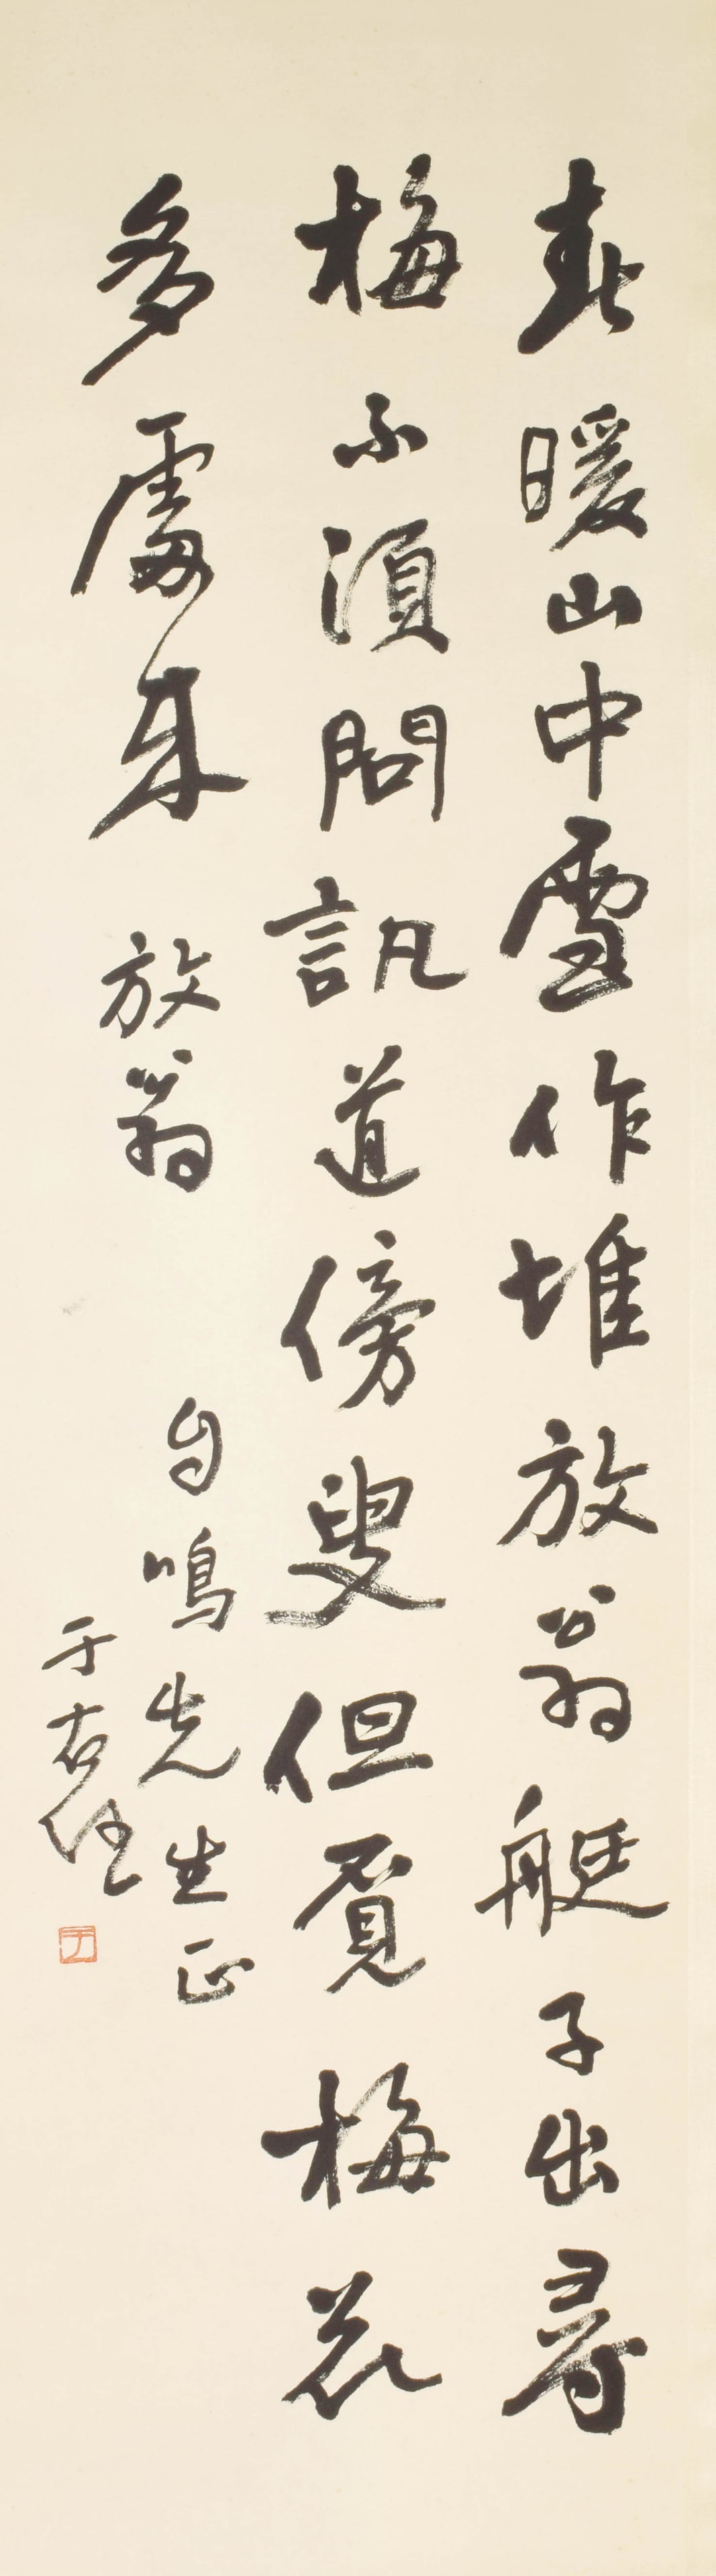 春暖山中雪作堆放翁艇子出尋
梅不須問訊道傍叟但覔梅花
多處來 放翁
自鳴先生正
于右任